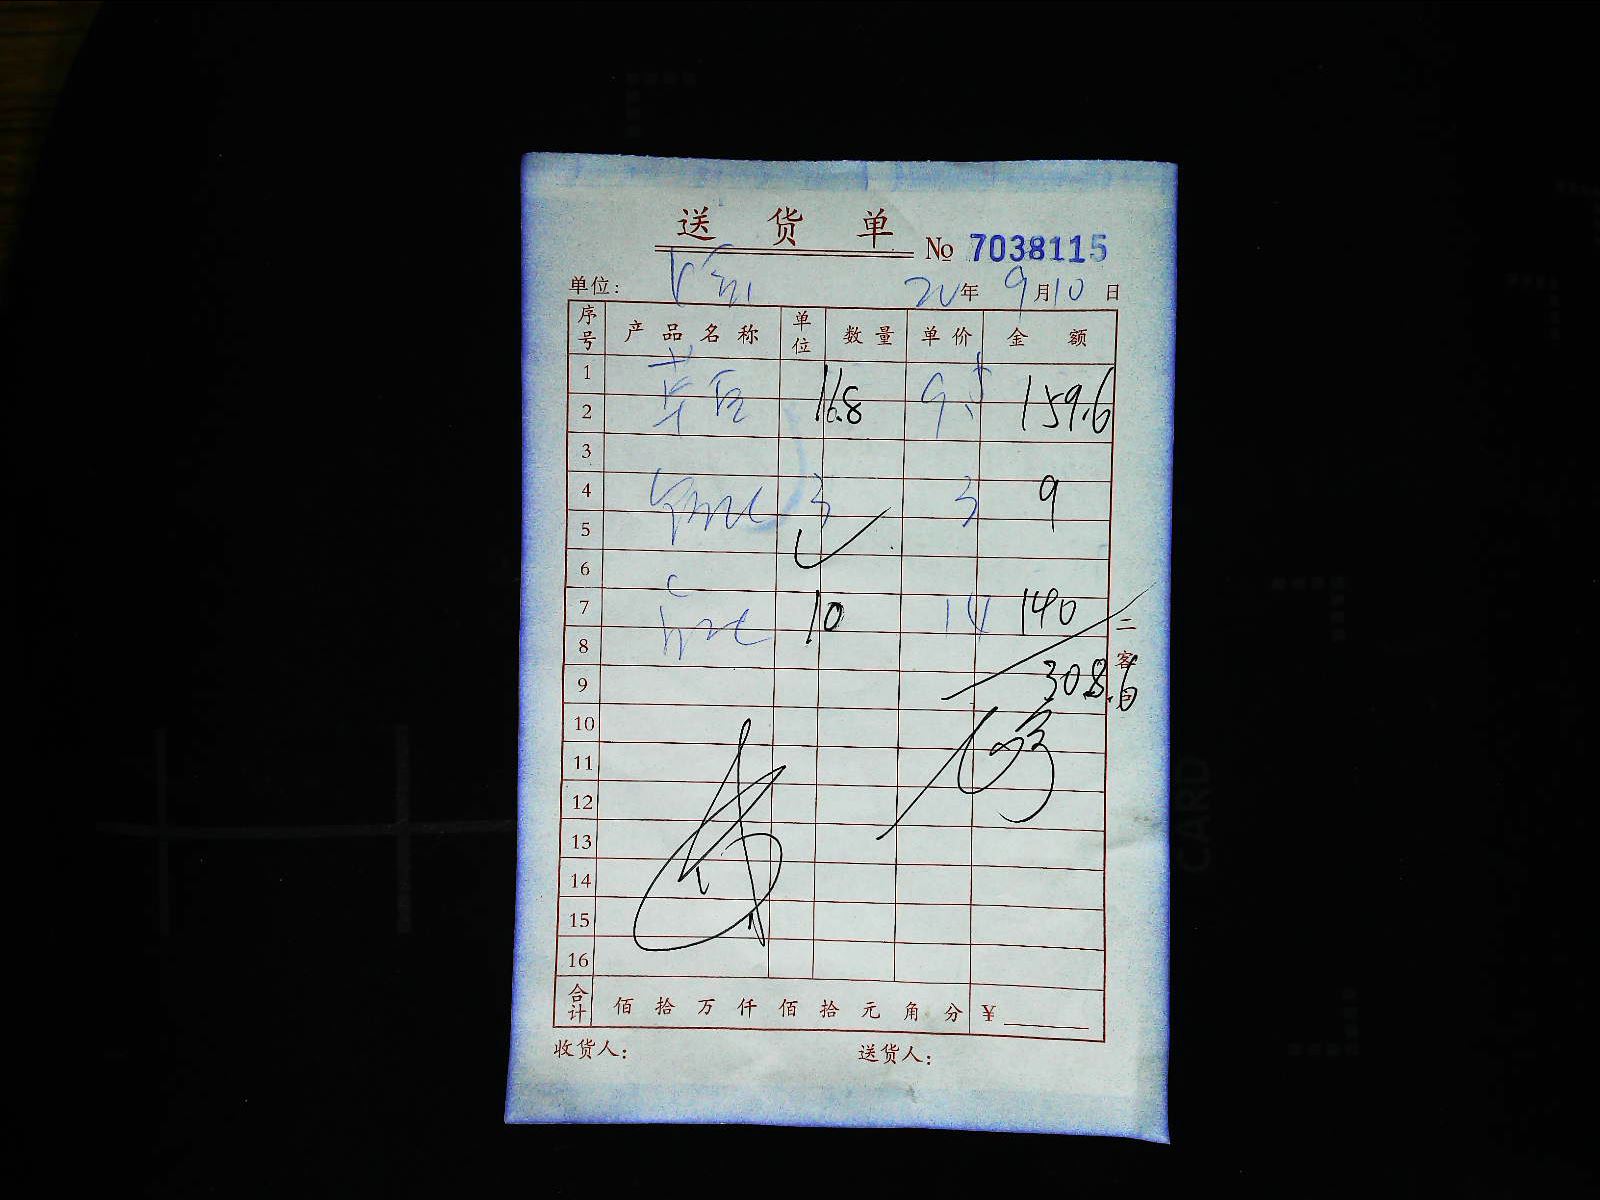 送货单
№ 7038115
单位: 20年 9月10日
序号 产品名称 单位 数量 单价 金额
1
2 16.8 9.5 159.6
3
4 3 3 9
5
6
7 10 14 140
8
9 308.6
10
11
12
13
14
15
16
合计 佰拾万仟佰拾元角分 ¥
收货人: 送货人:
二客白
CARD